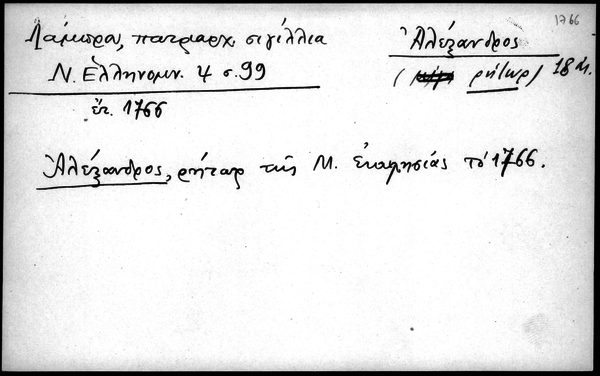 1766
Λάμπρου, πατριαρχ. σιγίλλια
Ν. Ἑλληνομν. 4 σ. 99
ἔτ. 1766
Ἀλέξανδρος
( ῥήτωρ) 18 αἰ.
Ἀλέξανδρος, ρήτωρ τῆς Μ. Ἐκκλησίας τὸ 1766.